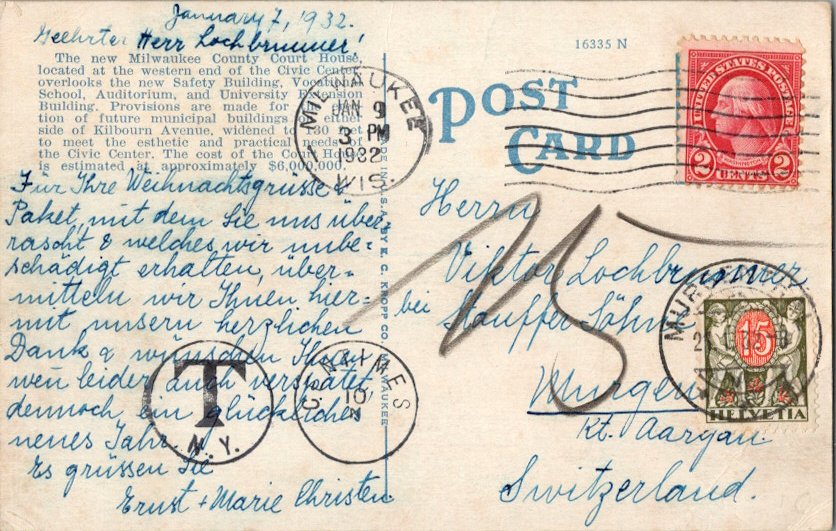 January 7, 1932.
Geehrter Herr Lochbrunner!
The new Milwaukee County Court House,
located at the western end of the Civic Center
overlooks the new Safety Building, Vocational
School, Auditorium, and University Extension
Building. Provisions are made for
tion of future municipal buildings on either
side of Kilbourn Avenue, widened to 130 feet
to meet the esthetic and practical needs of
the Civic Center. The cost of the Court House
is estimated at approximately $6,000,000.
Für Ihre Weihnachtsgrüsse &
Paket, mit dem Sie uns über-
rascht & welches wir unbe-
schädigt erhalten, über-
mitteln wir Ihnen hier-
mit unsern herzlichen
Dank & wünschen Ihnen,
wen leider auch verspätet,
dennoch ein glückliches
neues Jahr.
Es grüssen Sie
Ernst + Marie Christen.
MILWAUKEE
JAN 9
3 PM
1932
WIS.
T
N.Y.
10
CENTIMES
MADE IN U.S.A. BY E. C. KROPP CO., MILWAUKEE
16335 N
POST
CARD
UNITED STATES POSTAGE
2 CENTS 2
Herrn
Viktor Lochbrunner
bei Stauffer Söhne
Murgen
Kt. Aargau.
Switzerland.
15
HELVETIA